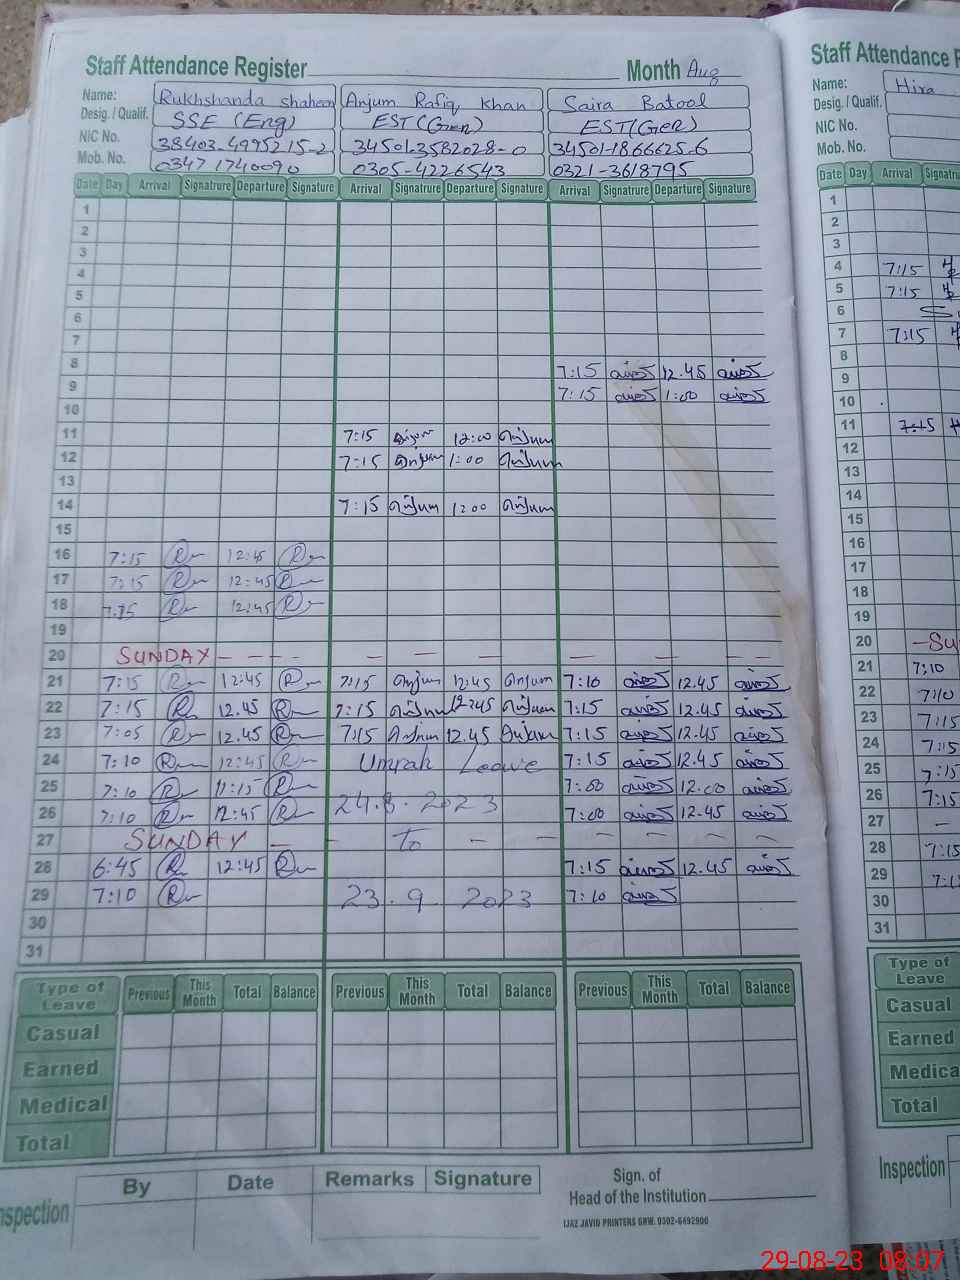 Staff Attendance Register Month Aug
Name: Rukhshanda shaheen Anjum Rafiq Khan Saira Batool
Desig. / Qualif. SSE (Eng) EST(Gen) EST(GeR)
NIC No. 38403-4995215-2 34501-3582028-0 34501-1866625-6
Mob. No. 0347 1740090 0305-4226543 0321-3618795
Date Day Arrival Signatrure Departure Signature Arrival Signatrure Departure Signature Arrival Signatrure Departure Signature
1
2
3
4
5
6
7
8 7:15 12.45
9 7:15 1:00
10
11 7:15 Anjum 12:00 Anjum
12 7:15 Anjum 1:00 Anjum
13
14 7:15 Anjum Anjum
15
16 7:15 12:45
17 7:15 12:45
18 12:45
19
20 SUNDAY
21 7:15 12:45 7:15 Anjum 12:45 Anjum 7:10 12.45
22 7:15 12.45 7:15 Anjum 12:45 Anjum 7:15 12.45
23 7:05 12.45 7:15 Anjum 12.45 Anjum 7:15 12.45
24 7:10 12:45 Umrah Leave 7:15 12.45
25 7:10 11:15 7:00 12:00
24.8.2023
26 7:10 12:45 7:00 12.45
27 SUNDAY To
28 6:45 12:45 7:15 12.45
29 7:10 23.9.2023 7:10
30
31
Type of Leave Previous This Month Total Balance Previous This Month Total Balance Previous This Month Total Balance
Casual
Earned
Medical
Total
Inspection By Date Remarks Signature
Sign. of
Head of the Institution
IJAZ JAVID PRINTERS GRW. 0302-6492900
Staff Attendance
Name: Hira
Desig. / Qualif.
NIC No.
Mob. No.
Date Day Arrival
1
2
3
4 7:15
5 7:15
6
7 7:15
8
9
10
11 7:15
12
13
14
15
16
17
18
19
20 Su
21 7:10
22 7:10
23 7:15
24 7:15
25 7:15
26 7:15
27
28 7:15
29
30
31
Type of
Leave
Casual
Earned
Total
Inspection
29-08-23 08:07